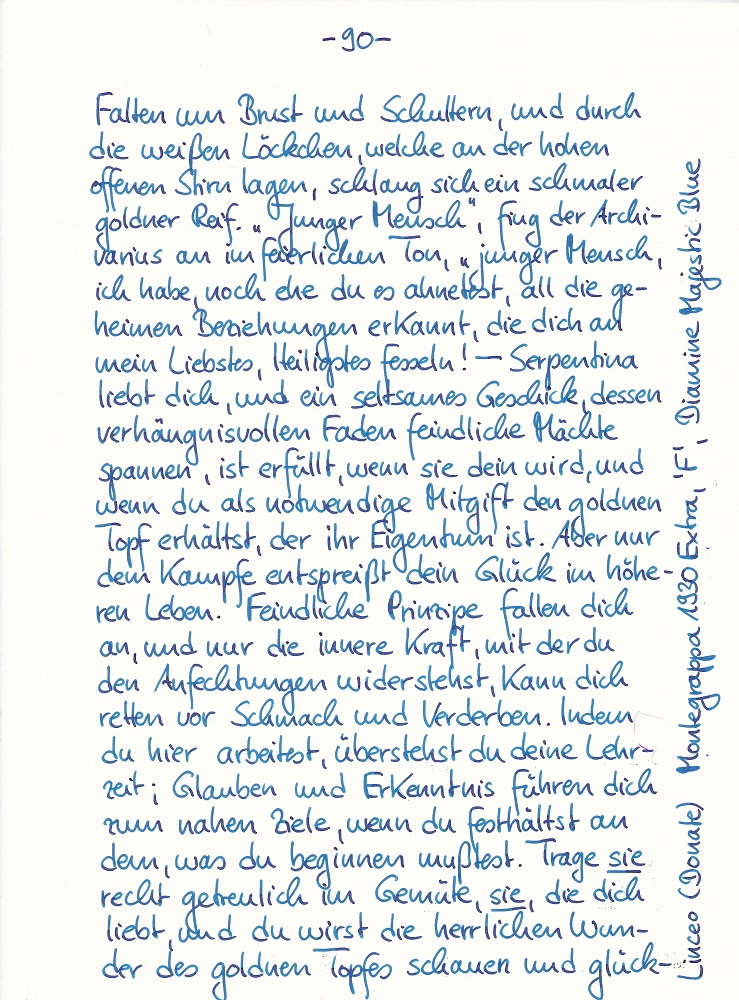 -90-
Falten um Brust und Schultern, und durch
die weißen Löckchen, welche an der hohen
offenen Stirn lagen, schlang sich ein schmaler
goldner Reif. „Junger Mensch", fing der Archi-
varius an im feierlichen Ton, „junger Mensch,
ich habe, noch ehe du es ahnetest, all die ge-
heimen Beziehungen erkannt, die dich an
mein Liebstes, Heiligstes fesseln! — Serpentina
liebt dich, und ein seltsames Geschick, dessen
verhängnisvollen Faden feindliche Mächte
spannen, ist erfüllt, wenn sie dein wird, und
wenn du als notwendige Mitgift den goldnen
Topf erhältst, der ihr Eigentum ist. Aber nur
dem Kampfe entsprießt dein Glück im höhe-
ren Leben. Feindliche Prinzipe fallen dich
an, und nur die innere Kraft, mit der du
den Anfechtungen widerstehst, kann dich
retten vor Schmach und Verderben. Indem
du hier arbeitest, überstehst du deine Lehr-
zeit; Glauben und Erkenntnis führen dich
zum nahen Ziele, wenn du festhältst an
dem, was du beginnen mußtest. Trage sie
recht getreulich im Gemüte, sie, die dich
liebt, und du wirst die herrlichen Wun-
der des goldnen Topfes schauen und glück-
Linceo (Donate) Montegrappa 1930 Extra, 'F', Diamine Majestic Blue